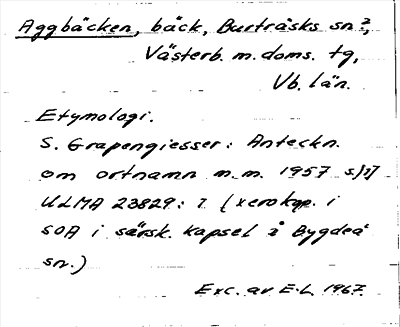 Aggbäcken, bäck, Burträsks sn?,
Västerb. m. doms. tg,
Vb. län.
Etymologi.
S. Grapengiesser: Anteckn.
om ortnamn m.m. 1957 s.
ULMA 23829: 1 (xerokop. i
SOA i särsk. kapsel i Bygdeå
sn.)
Exc. av E.L. 1967.